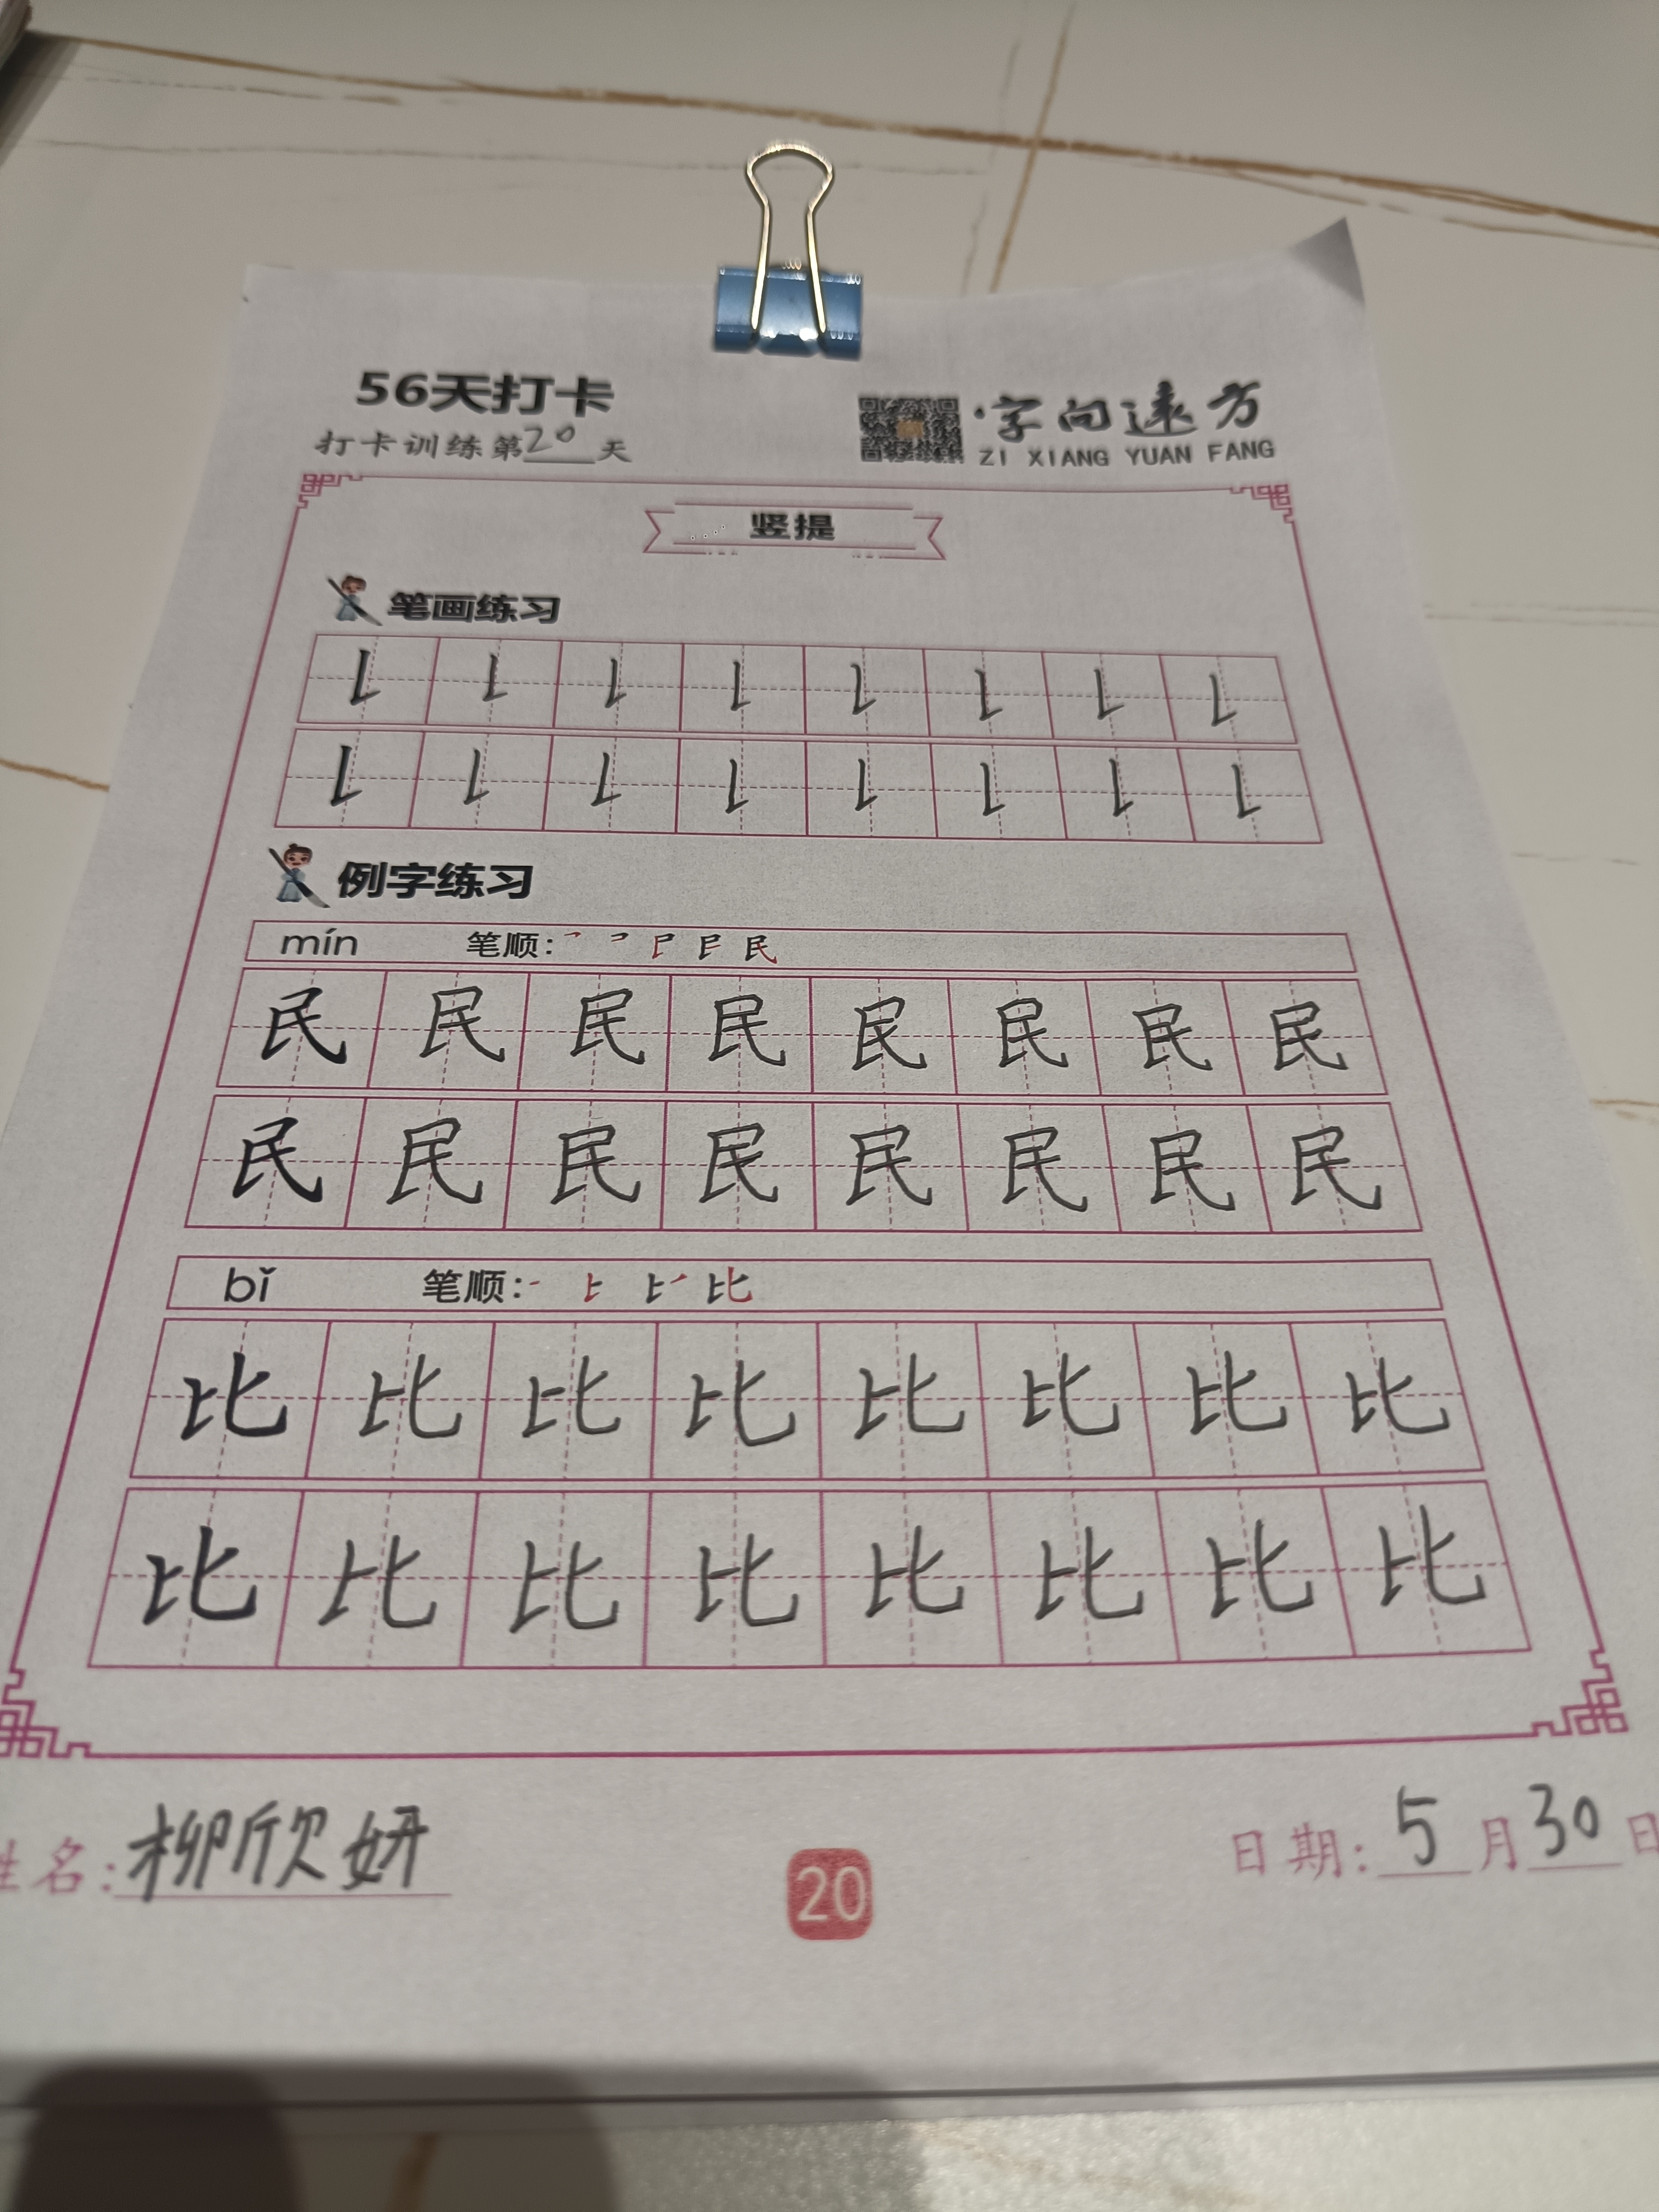 56天打卡
打卡训练第20天
·字向远方
ZI XIANG YUAN FANG
竖提
笔画练习
例字练习
mín 笔顺: 民
民 民 民 民 民 民 民 民
民 民 民 民 民 民 民 民
bǐ 笔顺: 比
比 比 比 比 比 比 比 比
比 比 比 比 比 比 比 比
姓名:柳欣妍
20
日期:5月30日